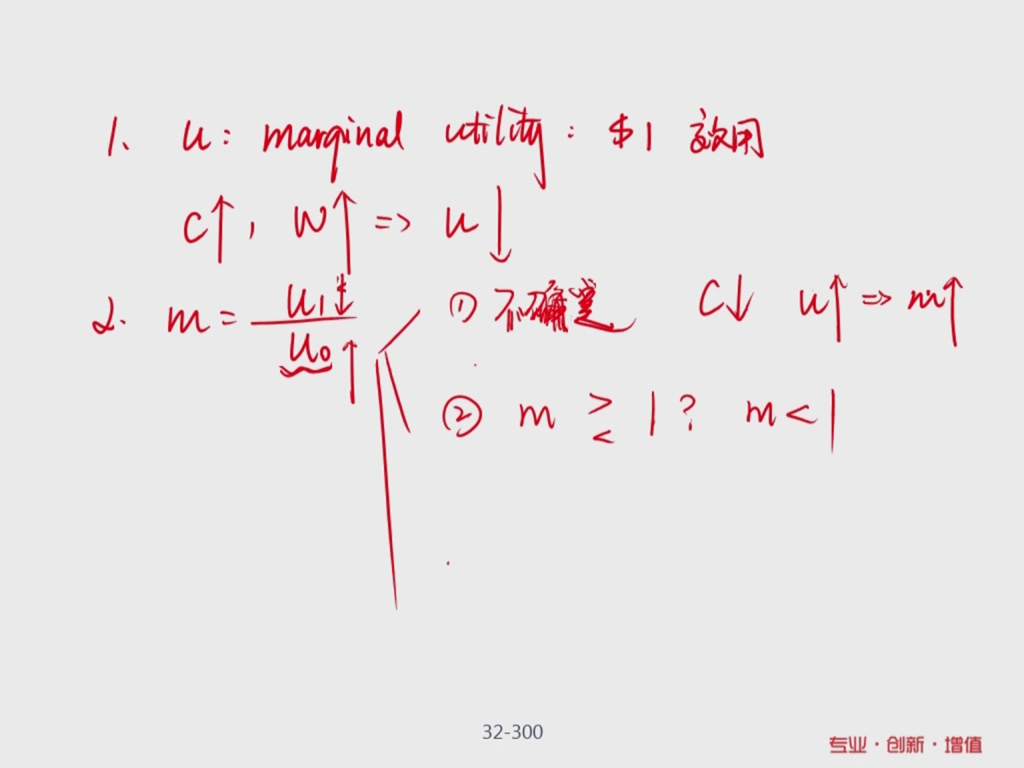 1. u: marginal utility: $1 效用
C↑, W↑ => u↓
2. m = u₁↓ / u₀↑ ① 不确定 C↓ u↑ => m↑
② m ≷ 1? m < 1
32-300
专业·创新·增值